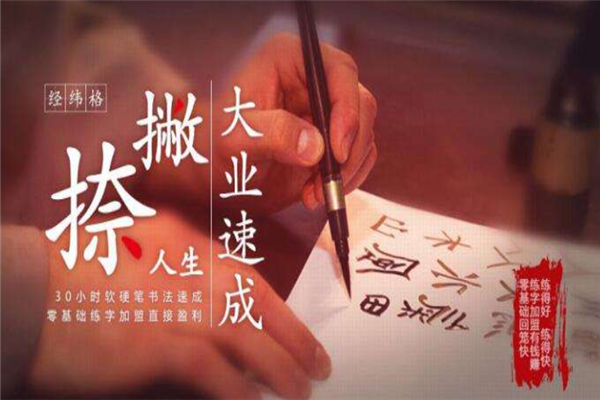 经纬格
撇捺人生
大业速成
30小时软硬笔书法速成
零基础练字加盟直接盈利
练得好 练得快
练字加盟有钱赚
零基础回笼快